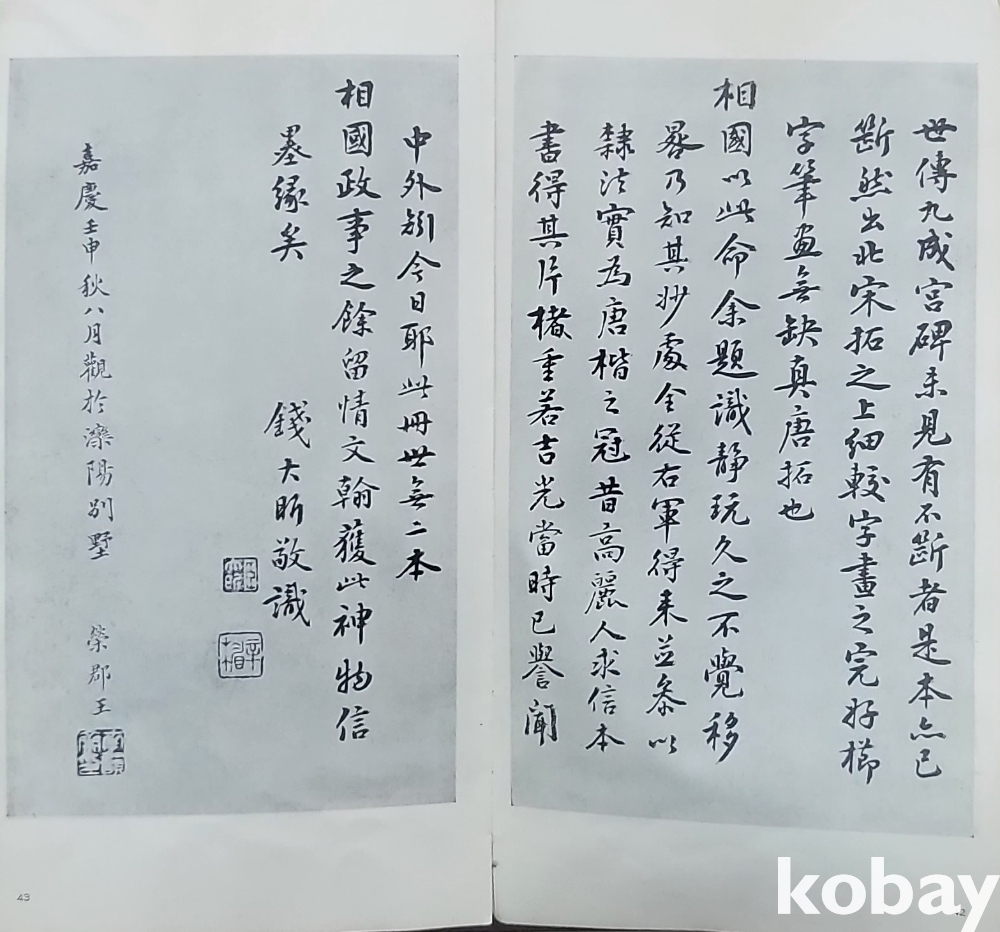 世傳九成宮碑未見有不斷者是本亦已
斷然出北宋拓之上細較字畫之完好櫛
字筆画無缺真唐拓也
相國以此命余題識靜玩久之不覺移
晷乃知其妙處全從右軍得来並叅以
隸法實為唐楷之冠昔高麗人求信本
書得其片楮重若吉光當時已譽聞
中外矧今日耶此冊世無二本
相國政事之餘留情文翰獲此神物信
墨緣矣
錢大昕敬識
嘉慶壬申秋八月觀於灤陽別墅
榮郡王
43
42
kobay